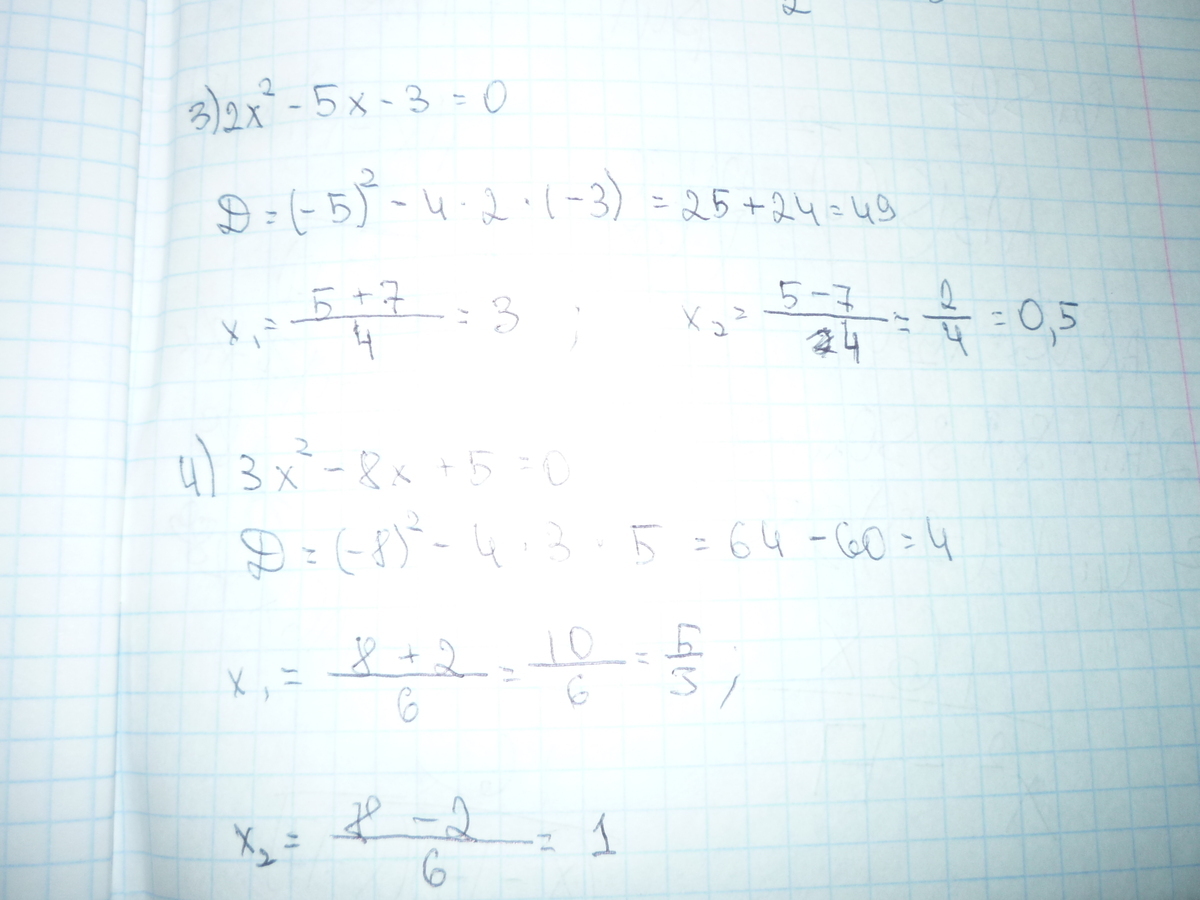 3) 2x² - 5x - 3 = 0
D = (-5)² - 4 · 2 · (-3) = 25 + 24 = 49
x₁ = (5 + 7)/4 = 3 ; x₂ = (5 - 7)/4 = 2/4 = 0,5
4) 3x² - 8x + 5 = 0
D = (-8)² - 4 · 3 · 5 = 64 - 60 = 4
x₁ = (8 + 2)/6 = 10/6 = 5/3 ;
x₂ = (8 - 2)/6 = 1